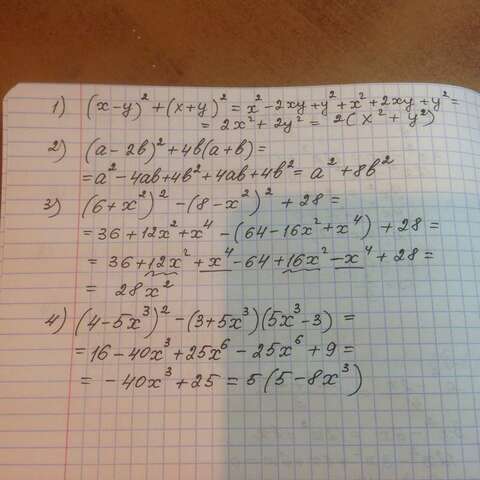 1) (x-y)² + (x+y)² = x² - 2xy + y² + x² + 2xy + y² =
= 2x² + 2y² = 2(x² + y²)
2) (a - 2b)² + 4b(a+b) =
= a² - 4ab + 4b² + 4ab + 4b² = a² + 8b²
3) (6+x²)² - (8-x²)² + 28 =
= 36 + 12x² + x⁴ - (64 - 16x² + x⁴) + 28 =
= 36 + 12x² + x⁴ - 64 + 16x² - x⁴ + 28 =
= 28x²
4) (4-5x³)² - (3+5x³)(5x³-3) =
= 16 - 40x³ + 25x⁶ - 25x⁶ + 9 =
= -40x³ + 25 = 5(5-8x³)